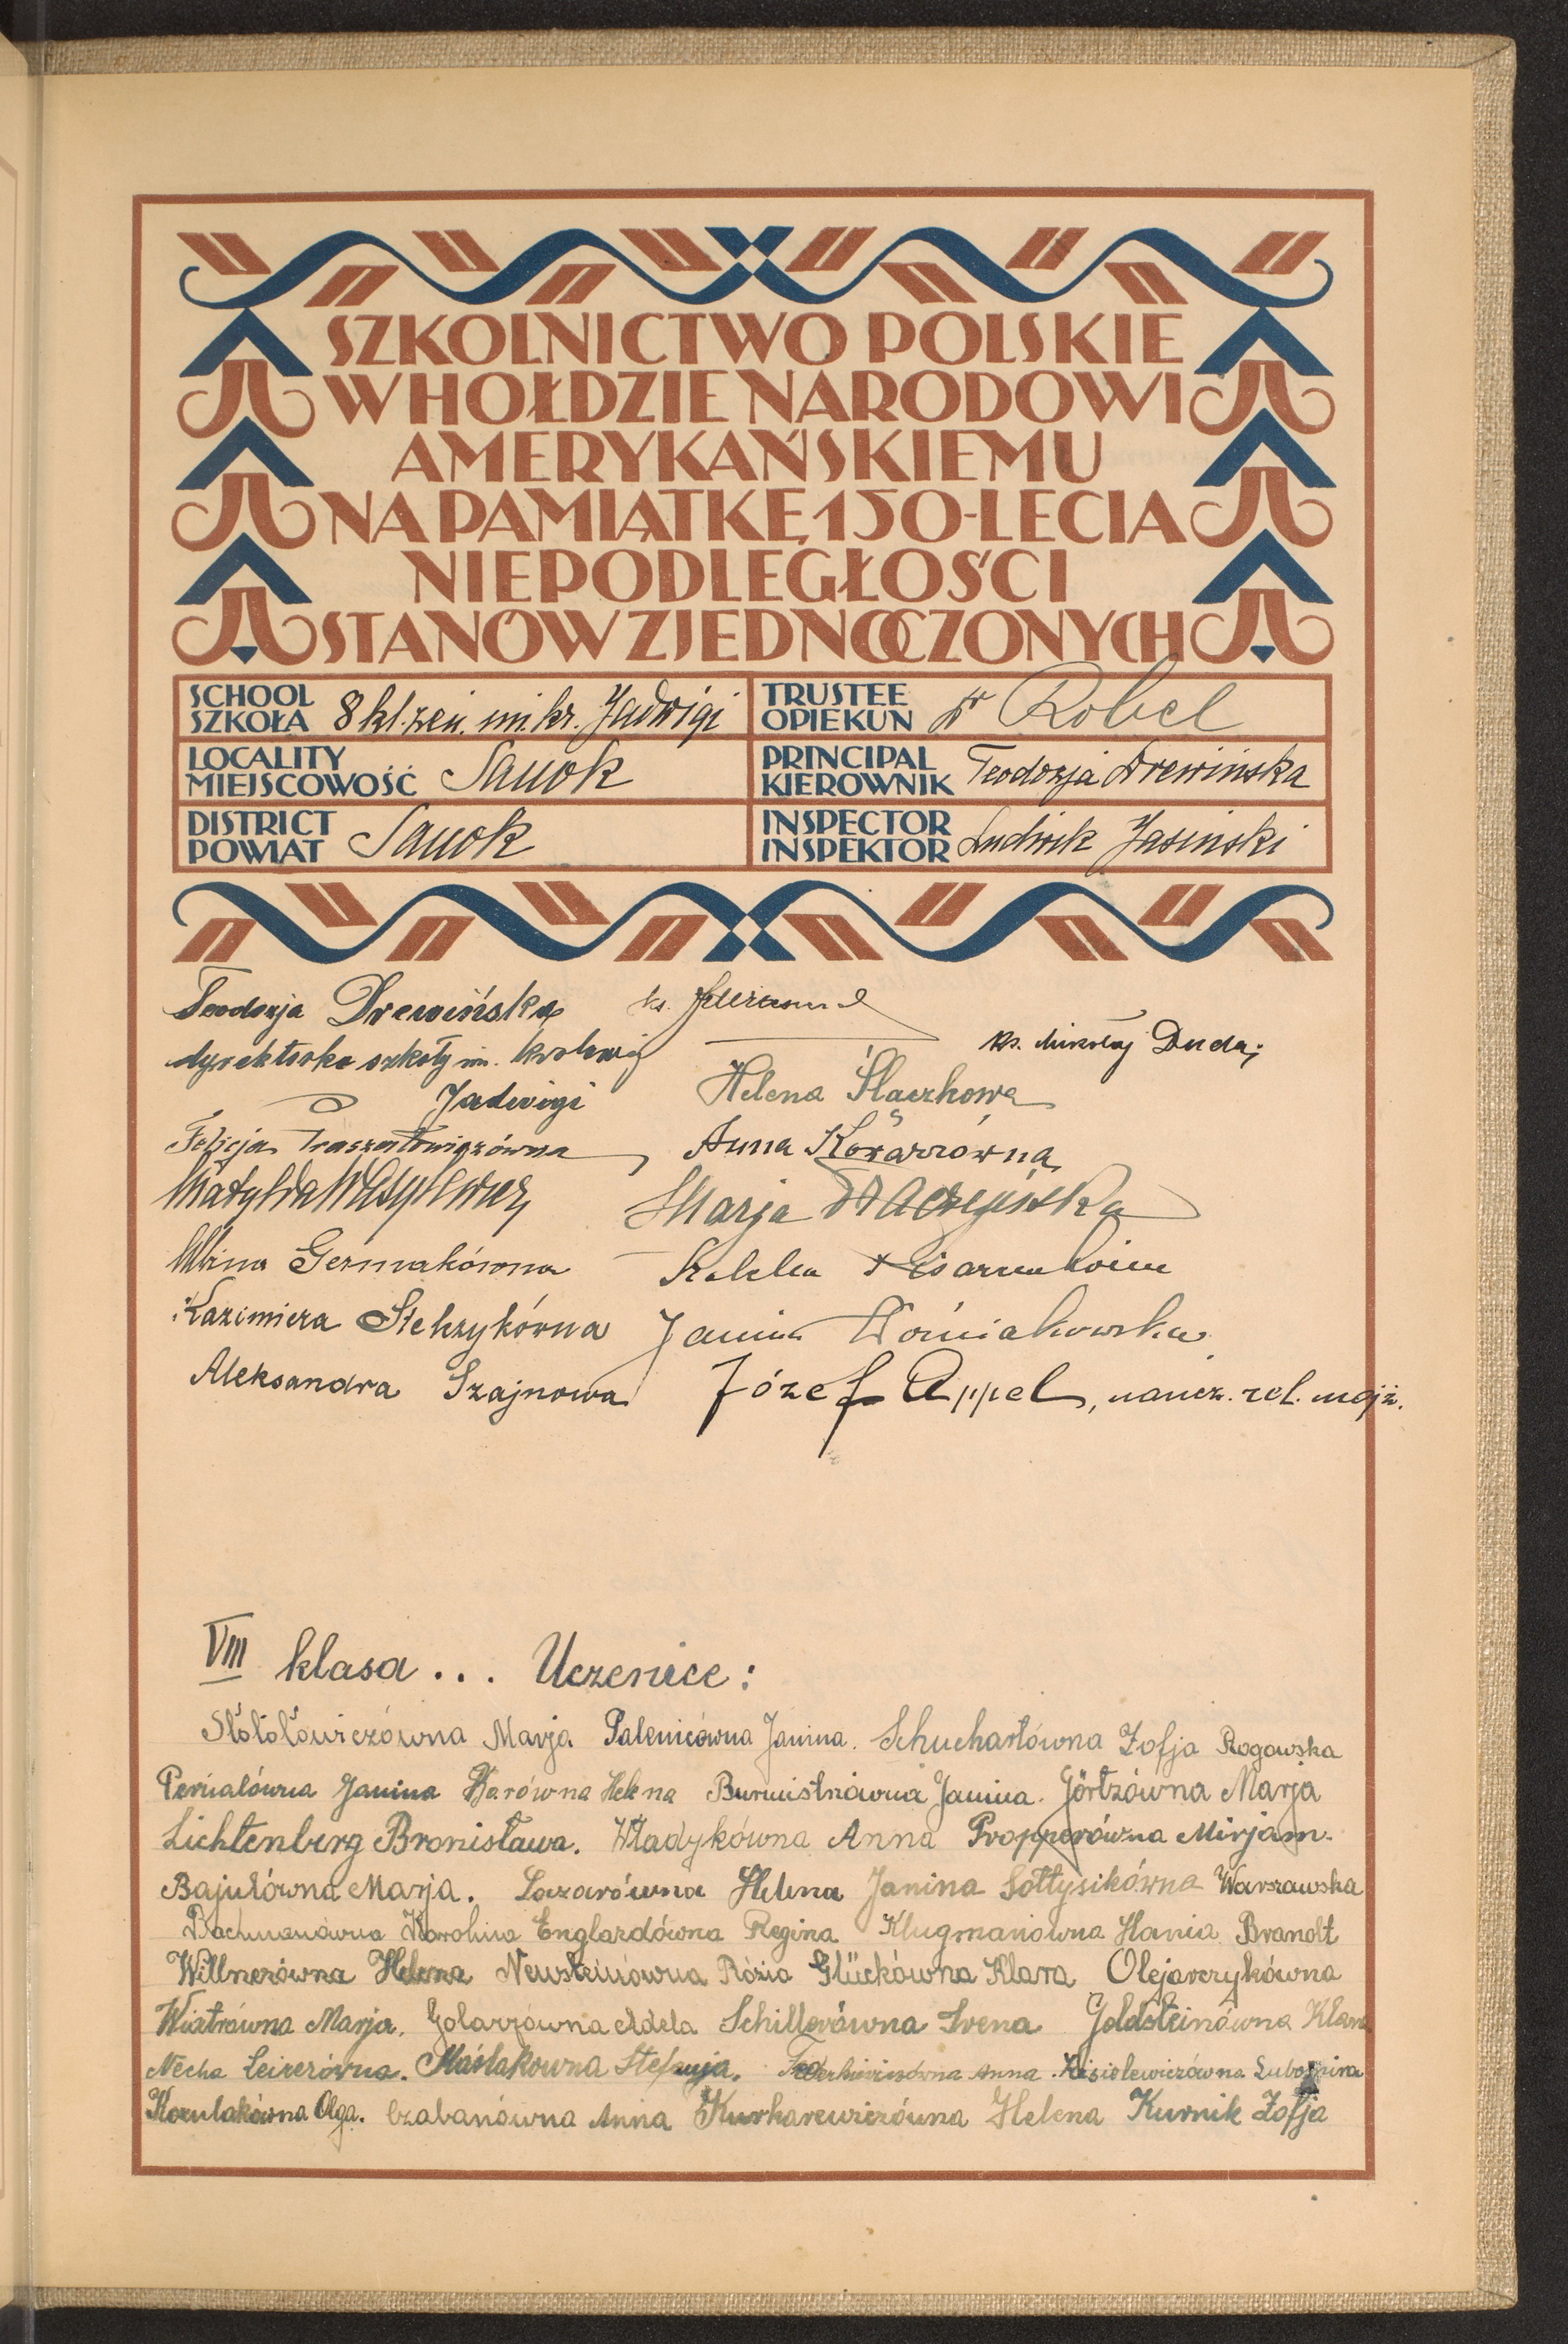 SZKOLNICTWO POLSKIE
W HOŁDZIE NARODOWI
AMERYKAŃSKIEMU
NA PAMIĄTKĘ 150-LECIA
NIEPODLEGŁOŚCI
STANÓW ZJEDNOCZONYCH
SCHOOL SZKOŁA 8 kl. żeń. im. kr. Jadwigi
TRUSTEE OPIEKUN Dr Robel
LOCALITY MIEJSCOWOŚĆ Sanok
PRINCIPAL KIEROWNIK Teodozja Drewińska
DISTRICT POWIAT Sanok
INSPECTOR INSPEKTOR Ludwik Jasiński
Teodozja Drewińska ks.
dyrektorka szkoły im. królowej ks. Mikołaj Duda
Jadwigi Helena Ślączkowa
Felicja Anna
Matylda Wasylewicz Marja
Albina Germakówna
Kazimiera Stekrzykówna Janina Woźniakowska
Aleksandra Szajnowa Józef Appel, naucz. rel. mojż.
VIII klasa ... Uczenice:
Słotołowiczówna Marja Palenicówna Janina. Schuchartówna Zofja Rogowska
Janina Helena Burmistrzówna Janina. Görtzówna Marja
Lichtenberg Bronisława. Władykówna Anna Propperówna Mirjam.
Bajułówna Marja. Lazarówna Helena Janina Sołtysikówna Warszawska
Bachmanówna Karolina Englardówna Regina Klugmanówna Hania Brandt
Willnerówna Helena Neusteinówna Rózia Glückówna Klara Olejarczykówna
Wiatrówna Marja. Golarzówna Adela Schillerówna Irena Goldsteinówna Klara
Necha Leizerówna. Maślakówna Stefanja. Anna Kisielewiczówna
Kozulakówna Olga. Czabanówna Anna Kucharewiczówna Helena Kurnik Zofja